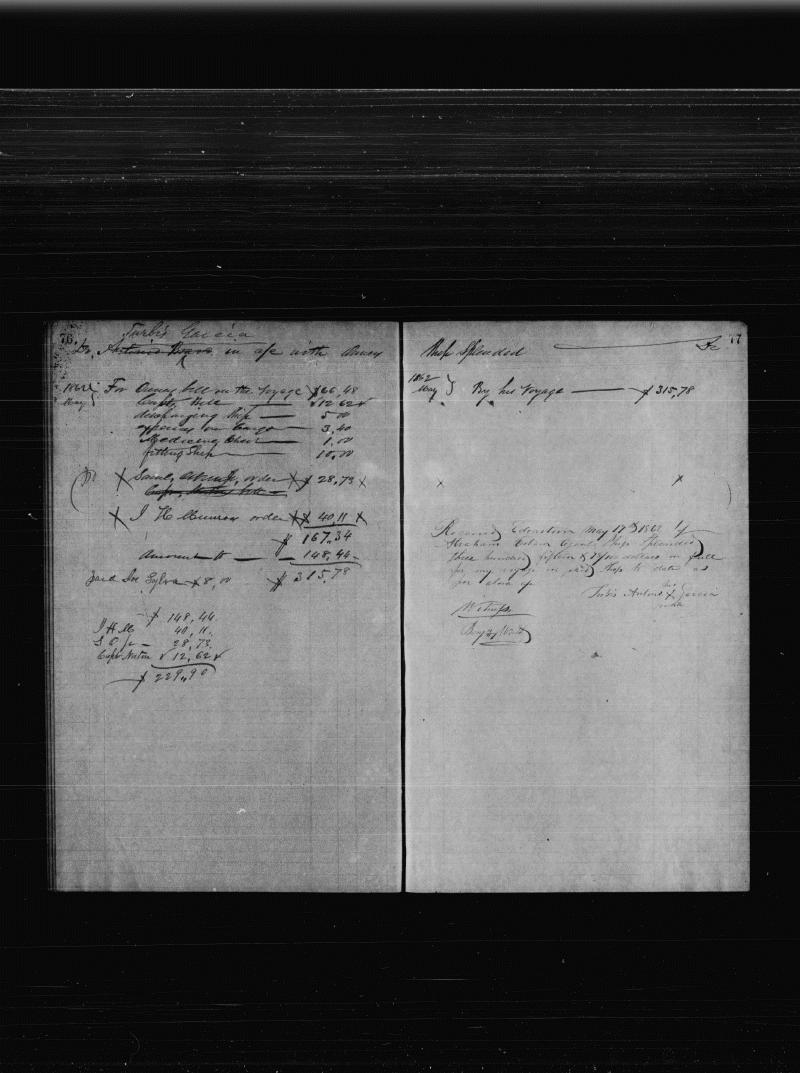 76.
Turbis Garcia
Dr, in a/c with Owners
1862
May
For Owners bill on the Voyage $66,48
Capts Bill $12,62
discharging Ship 5,00
expenses on Cargo 3,40
Medicine Chest 1,00
fitting Ship 10,00
Saml, order $28,73
J H Munroe order $40,11
$167,34
Amount to 148,44
paid Joe Sylva $8,00 $315,78
$148,44
J H M 40,11
S O 28,73
Capt 12,62
$229,90
77
Ship Splendid Cr
1862
May
By his Voyage $315,78
Received Edgartown May 17th 1862 of
Abraham Osborn Agent Ship Splendid
three hundred fifteen & 78/100 dollars in full
for my voyage in said Ship to date as
per above
his
Turbis Antone X Garcia
mark
Witness